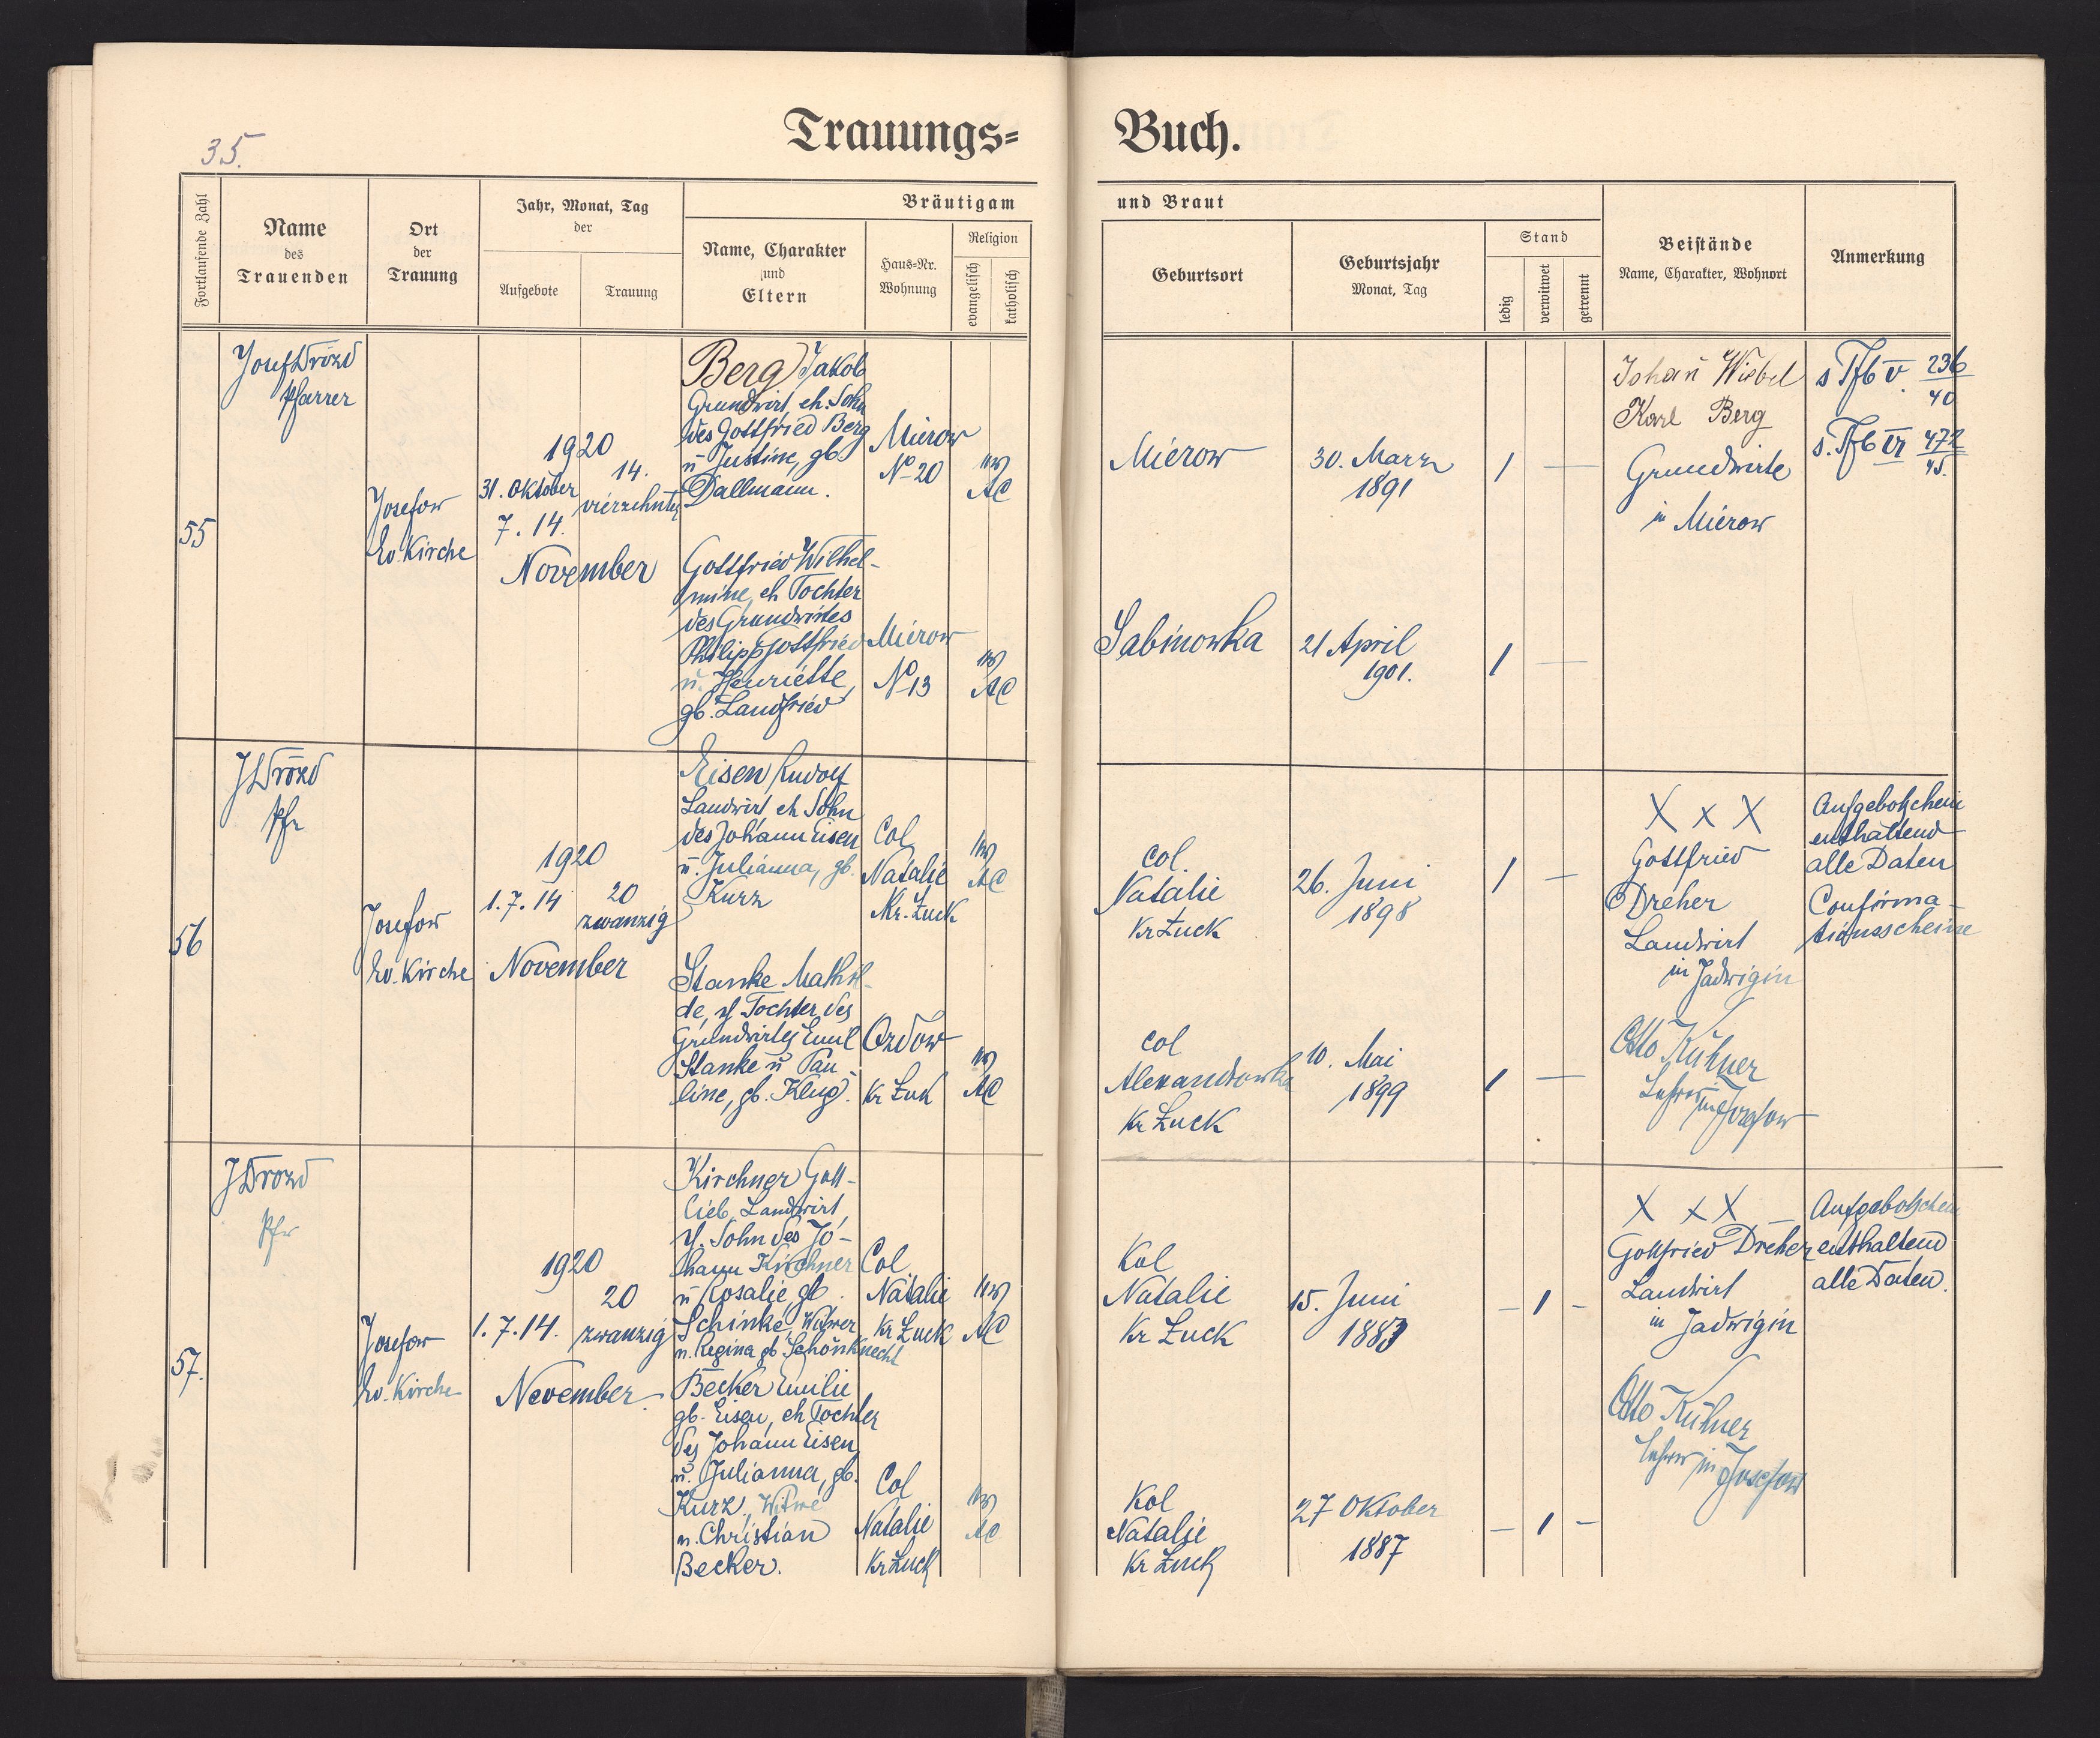 35.
Trauungs=
Buch.
Fortlaufende Zahl
Name
des
Trauenden
Ort
der
Trauung
Jahr, Monat, Tag
der
Aufgebote
Trauung
Bräutigam
und Braut
Name, Charakter
und
Eltern
Haus=Nr.
Wohnung
Religion
evangelisch
katholisch
Geburtsort
Geburtsjahr
Monat, Tag
Stand
ledig
verwitwet
getrennt
Beistände
Name, Charakter, Wohnort
Anmerkung
55
Josef Drozd
Pfarrer
Josefow
Ev. Kirche
1920
31. Oktober
7. 14.
14.
vierzehnter
November
Berg Jakob
Grundwirt, eh. Sohn
des Gottfried Berg
u Justine, gb
Dallmann.
Mierow
No 20
AC
Mierow
30. Marz
1891
Johan̄ Wiebel
Karl Berg
Grundwirte
in Mierow
s Tfb V. 236
40
s. Tfb VI 472
45.
Gottfried Wilhel-
mine, eh Tochter
des Grundwirtes
Philipp Gottfried
u. Henriette,
gb. Landfried
Mierow
No 13
AC
Sabinowka
21 April
1901.
56
J Drozd
Pfr
Josefow
Ev. Kirche
1920
1. 7. 14
20
zwanzig
November
Eisen Rudolf
Landwirt eh Sohn
des Johann Eisen
u. Julianna, gb.
Kurz
Col
Natalie
Kr. Łuck
AC
Col.
Natalie
Kr Łuck
26. Juni
1898
X x X
Gottfried
Dreher
Landwirt
in Jadwigin
Otto Kühner
Aufgebotschein
enthaltend
alle Daten
Confirma-
tionsscheine
Stanke Mathil-
de, Tochter des
Grundwirtes Emil
Stanke u Pau-
line, gb. Klug.
Ozdow
Kr Łuck
AC
Col
Alexandrowka
Kr Łuck
10. Mai
1899
Lehrer in Josefow
57.
J Drozd
Pfr
Josefow
Ev. Kirche
1920
1. 7. 14.
20
zwanzig
November.
Kirchner Gott-
lieb, Landwirt,
Sohn des Jo-
hann Kirchner
u Rosalie, gb.
Schinke, Witwer
n. Regina gb Schönknecht
Col
Natalie
Kr Łuck
AC
Kol
Natalie
Kr Łuck
15. Juni
1883
X x X
Gottfried Dreher
Landwirt
in Jadwigin
Otto Kühner
Lehrer in Josefow
Aufgebotschein
enthaltend
alle Daten.
Becker Emilie
gb. Eisen, eh Tochter
des Johann Eisen
u. Julianna, gb.
Kurz, Witwe
n. Christian
Becker.
Col
Natalie
Kr Łuck
AC
Kol
Natalie
Kr Łuck
27 Oktober
1887